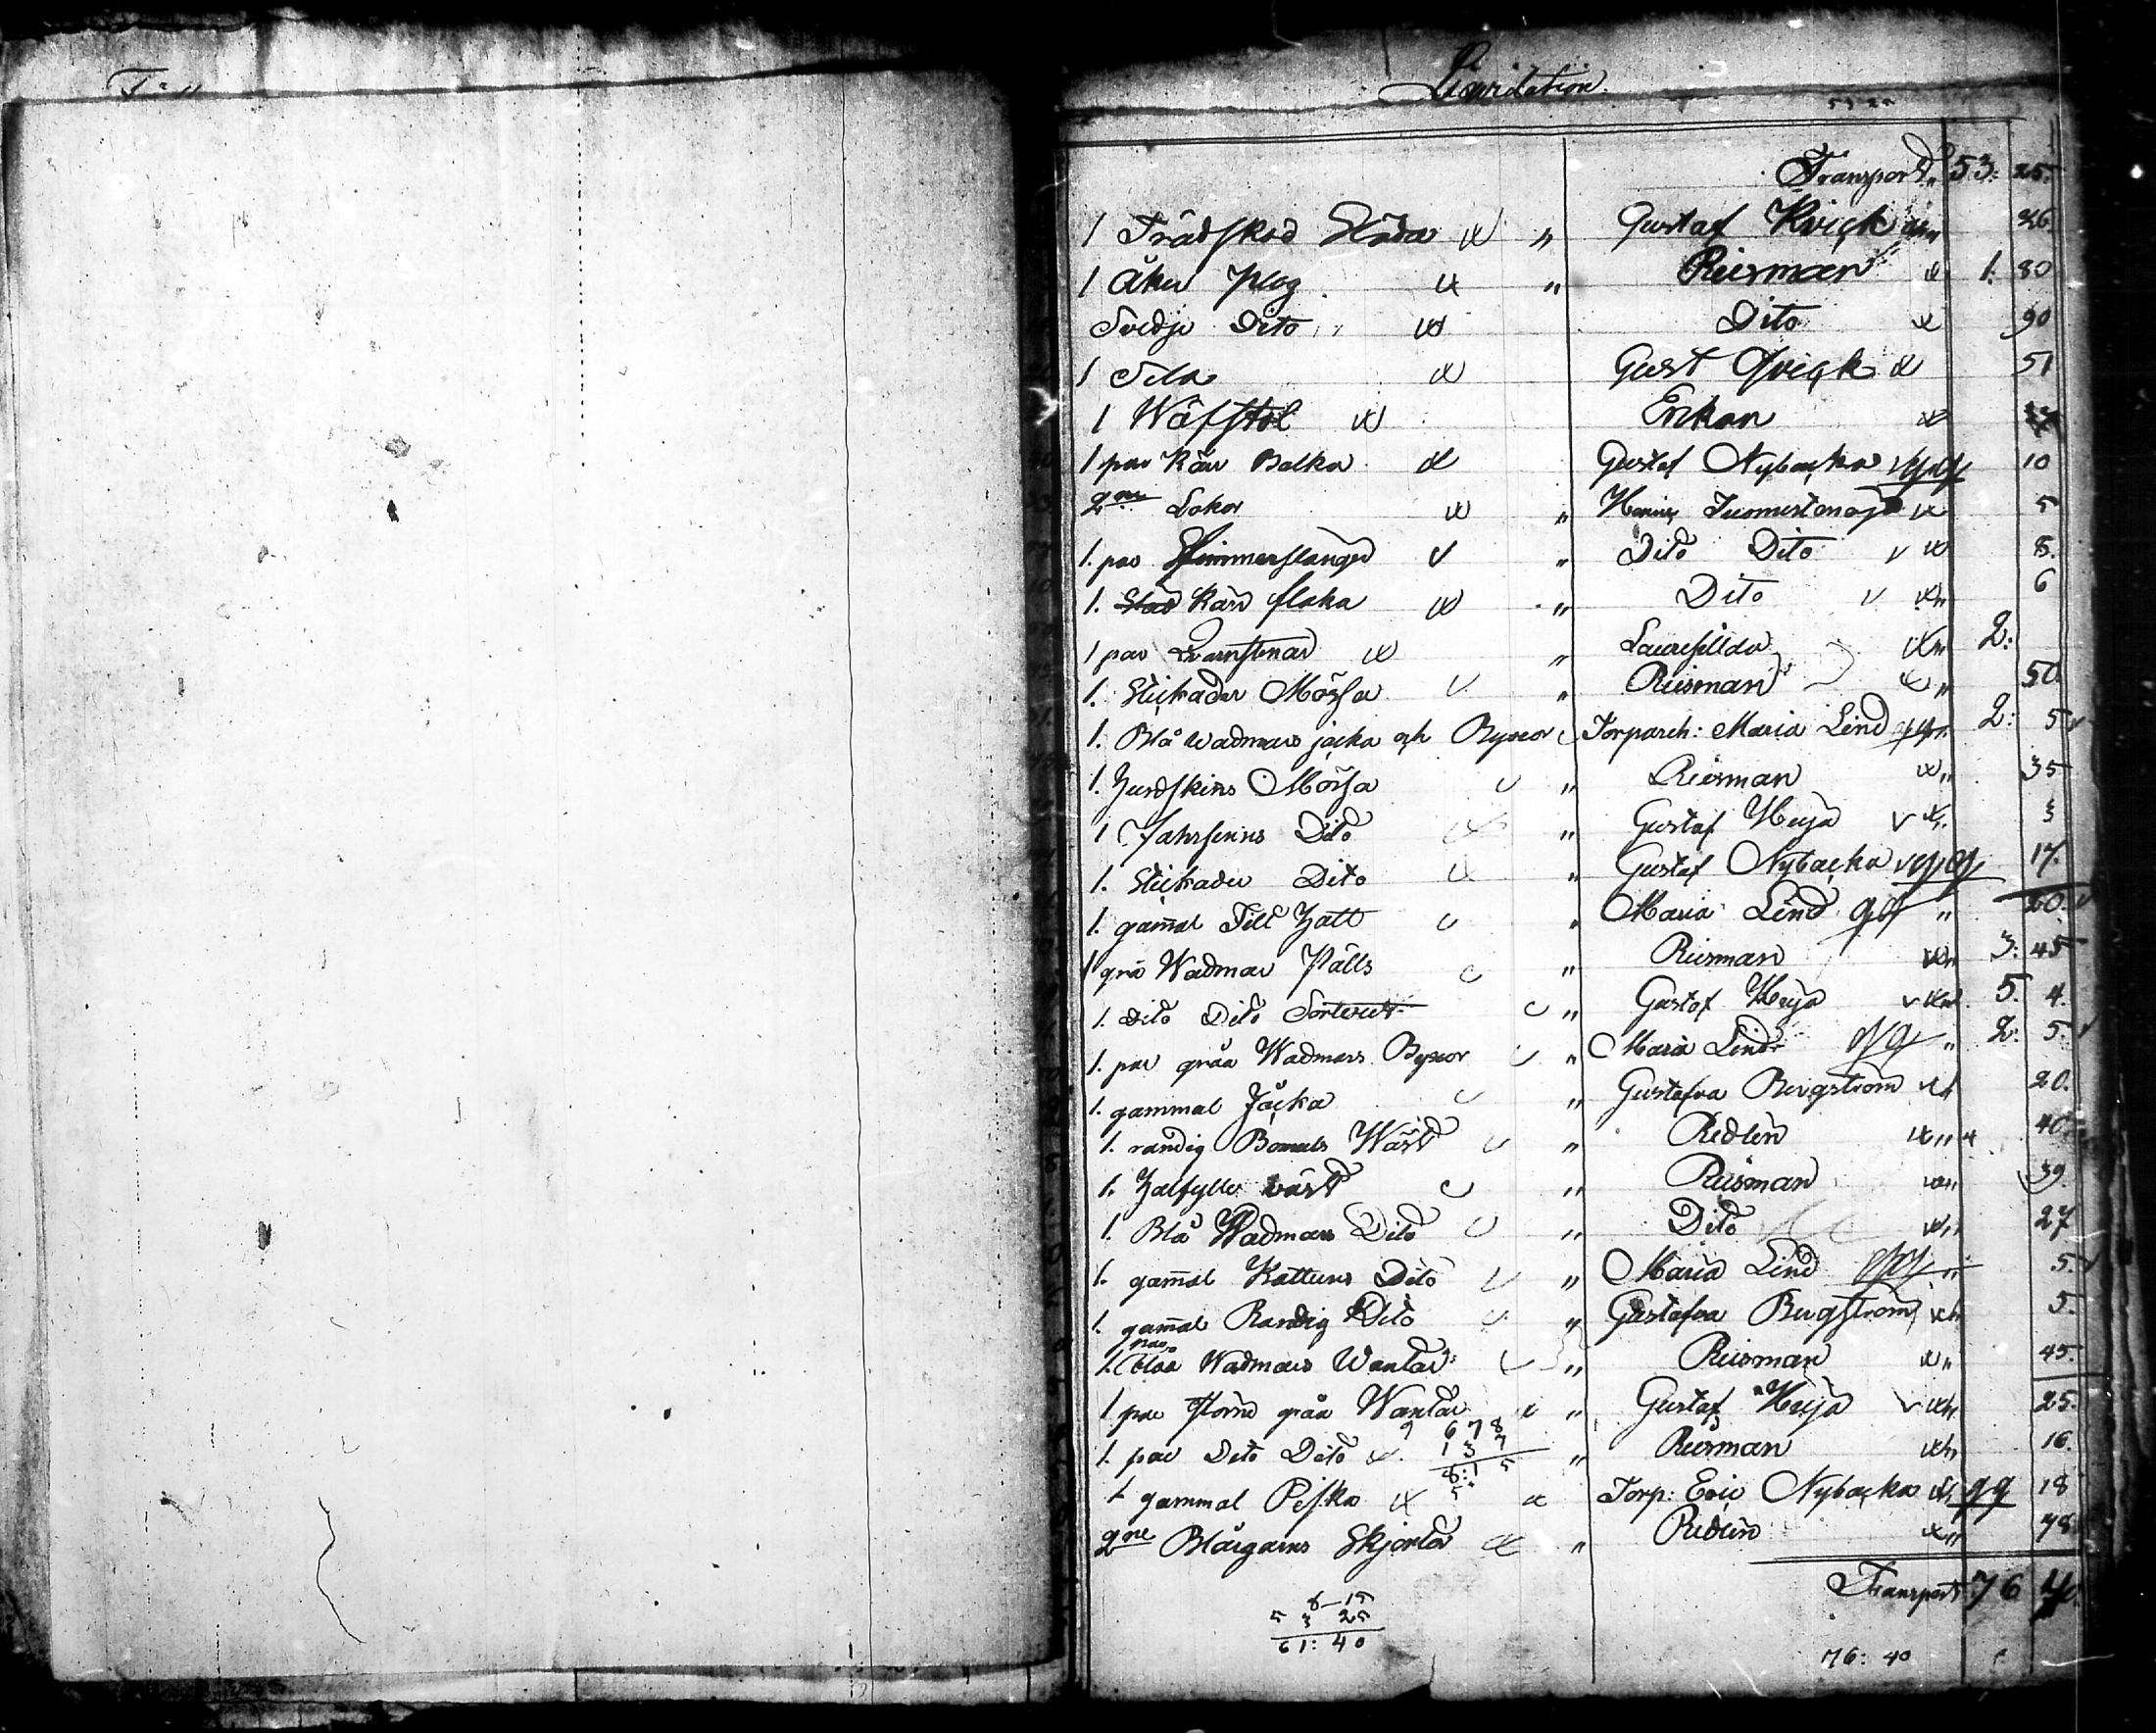 Liqvidation.
53 25
Transport 53: 25.
1 Trädskod Släda " Gustaf Kvick 26
1 Åker Plog " Riisman 1. 80
Svedje Dito " Dito 90
1 Sela Gust Qvick 51
1 Wäfstol Erikan
1 par Kär Balka Gustaf Nybacka 10
2ne Lokor " 5
1. par Skimmerslanger " Dito Dito 8.
1. Släd Kärr flaka " Dito 6
1 par Qvarnstenar " 2:
1. Stickader Mössa " Riisman 50
1. Blå Wadmars jacka och Byxor Torpareh: Maria Lind 2: 5
1. Hundskins Mössa " Riisman 35
1 Fahrskins Dito " Gustaf Heija 3
1. Stickader Dito " Gustaf Nybacka 17.
1. gamal Filt Hatt " Maria Lind 20.
1 grå Wadmar Pälls " Riisman 3: 45
1. Dito Dito Sorteut " Gustaf Heija 5. 4.
1. par gråa Wadmars Byxor " Maria Lind " 2: 5.
1. gammal Jacka " Gustafva Bergström 20.
1. randig Bomuls Wäst " Redlin 40
1. Halfylle väst " Riisman 39.
1. Blå Wadmars Dito " Dito 27
1. gamal Kattuns Dito " Maria Lind " 5.
1. gamal Randig Dito " Gustafva Bergström 5.
1. par blåa Wadmars Wantar " Riisman 45.
1 par större gråa Wantar " Gustaf Heija 25.
1. par Dito Dito " Riisman 16.
6 78
1 37
8:15
1 gammal Piska Torp: Eric Nybacka 18
2ne Blågarns Skjortor " Redlin 78
Transport 76 40.
8-15
53 25
61: 40
76: 40